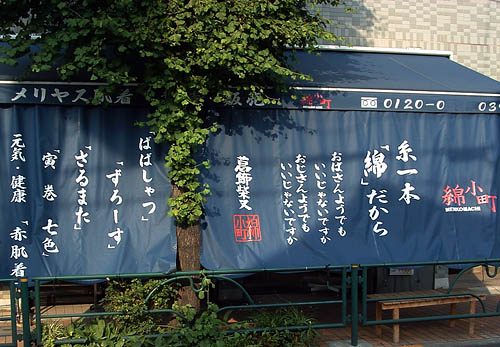 メリヤス肌着 販売 小町 0120-0 03
綿小町
MENKOMACHI
糸一本
「綿」だから
おばさんようでも
いいじゃないですか
おじさんようでも
いいじゃないですか
葛飾柴又
「ばばしゃつ」
「ずろーす」
「さるまた」
「寅 巻 七色」
元気 健康 「赤肌着